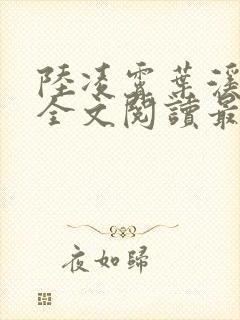 陸凌霄葉瑾
全文閱讀最
夜如歸